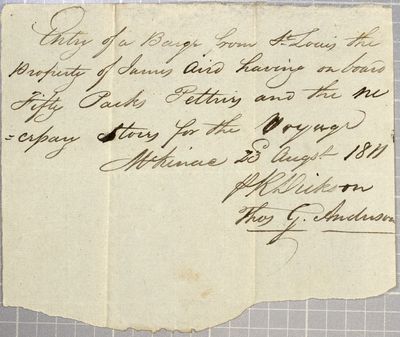 Entry of a Barge from St. Louis the
Property of James Aird having on board
Fifty Packs Peltries and the ne
=cessary Stores for the Voyage
Mkinac 23 Augst 1811
Dickson
Thos G. Anderson